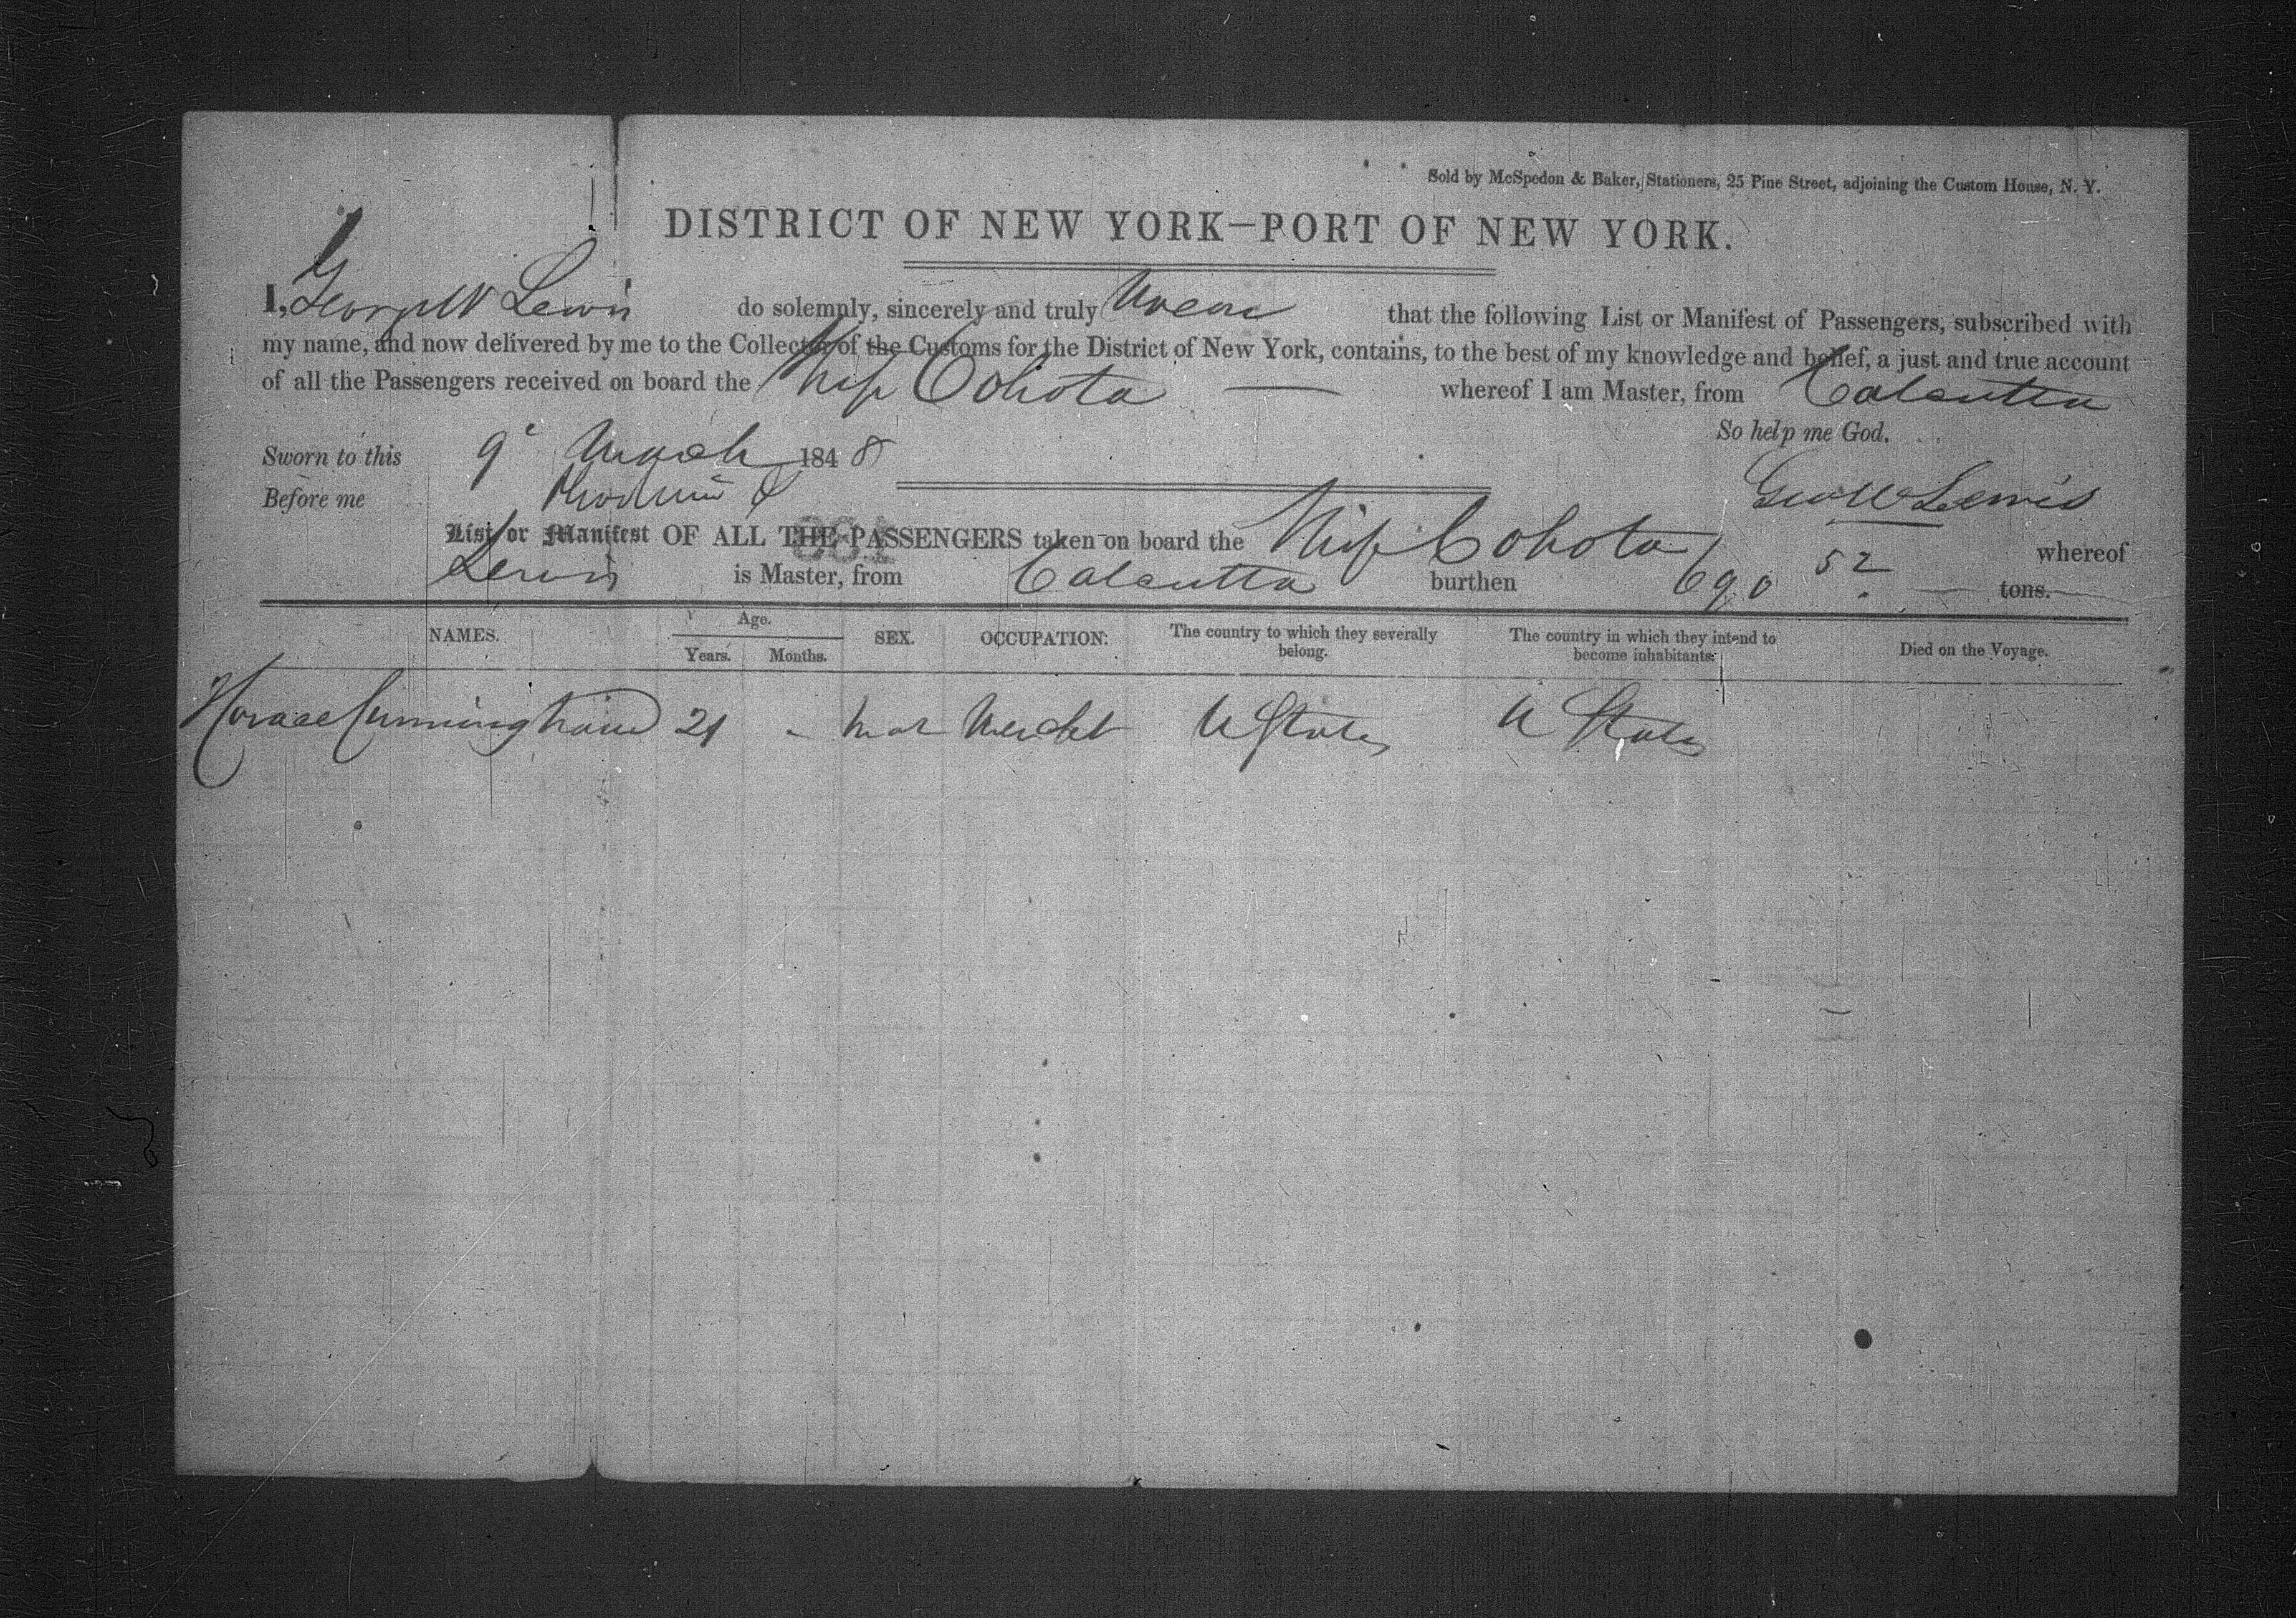 Sold by McSpedon & Baker, Stationers, 25 Pine Street, adjoining the Custom House, N. Y.
DISTRICT OF NEW YORK—PORT OF NEW YORK.
I, George W Lewis do solemnly, sincerely and truly Swear that the following List or Manifest of Passengers, subscribed with
my name, and now delivered by me to the Collector of the Customs for the District of New York, contains, to the best of my knowledge and belief, a just and true account
of all the Passengers received on board the Ship Cohota whereof I am Master, from Calcutta
So help me God.
Sworn to this 9 March 1848
Before me Geo W Lewis
List or Manifest OF ALL THE PASSENGERS taken on board the Ship Cohota whereof
Lewis is Master, from Calcutta burthen 690 52 tons.
NAMES. Age. Years. Months. SEX. OCCUPATION. The country to which they severally belong. The country in which they intend to become inhabitants. Died on the Voyage.
Horace Cunningham 21 - Mal Mercht U States U States